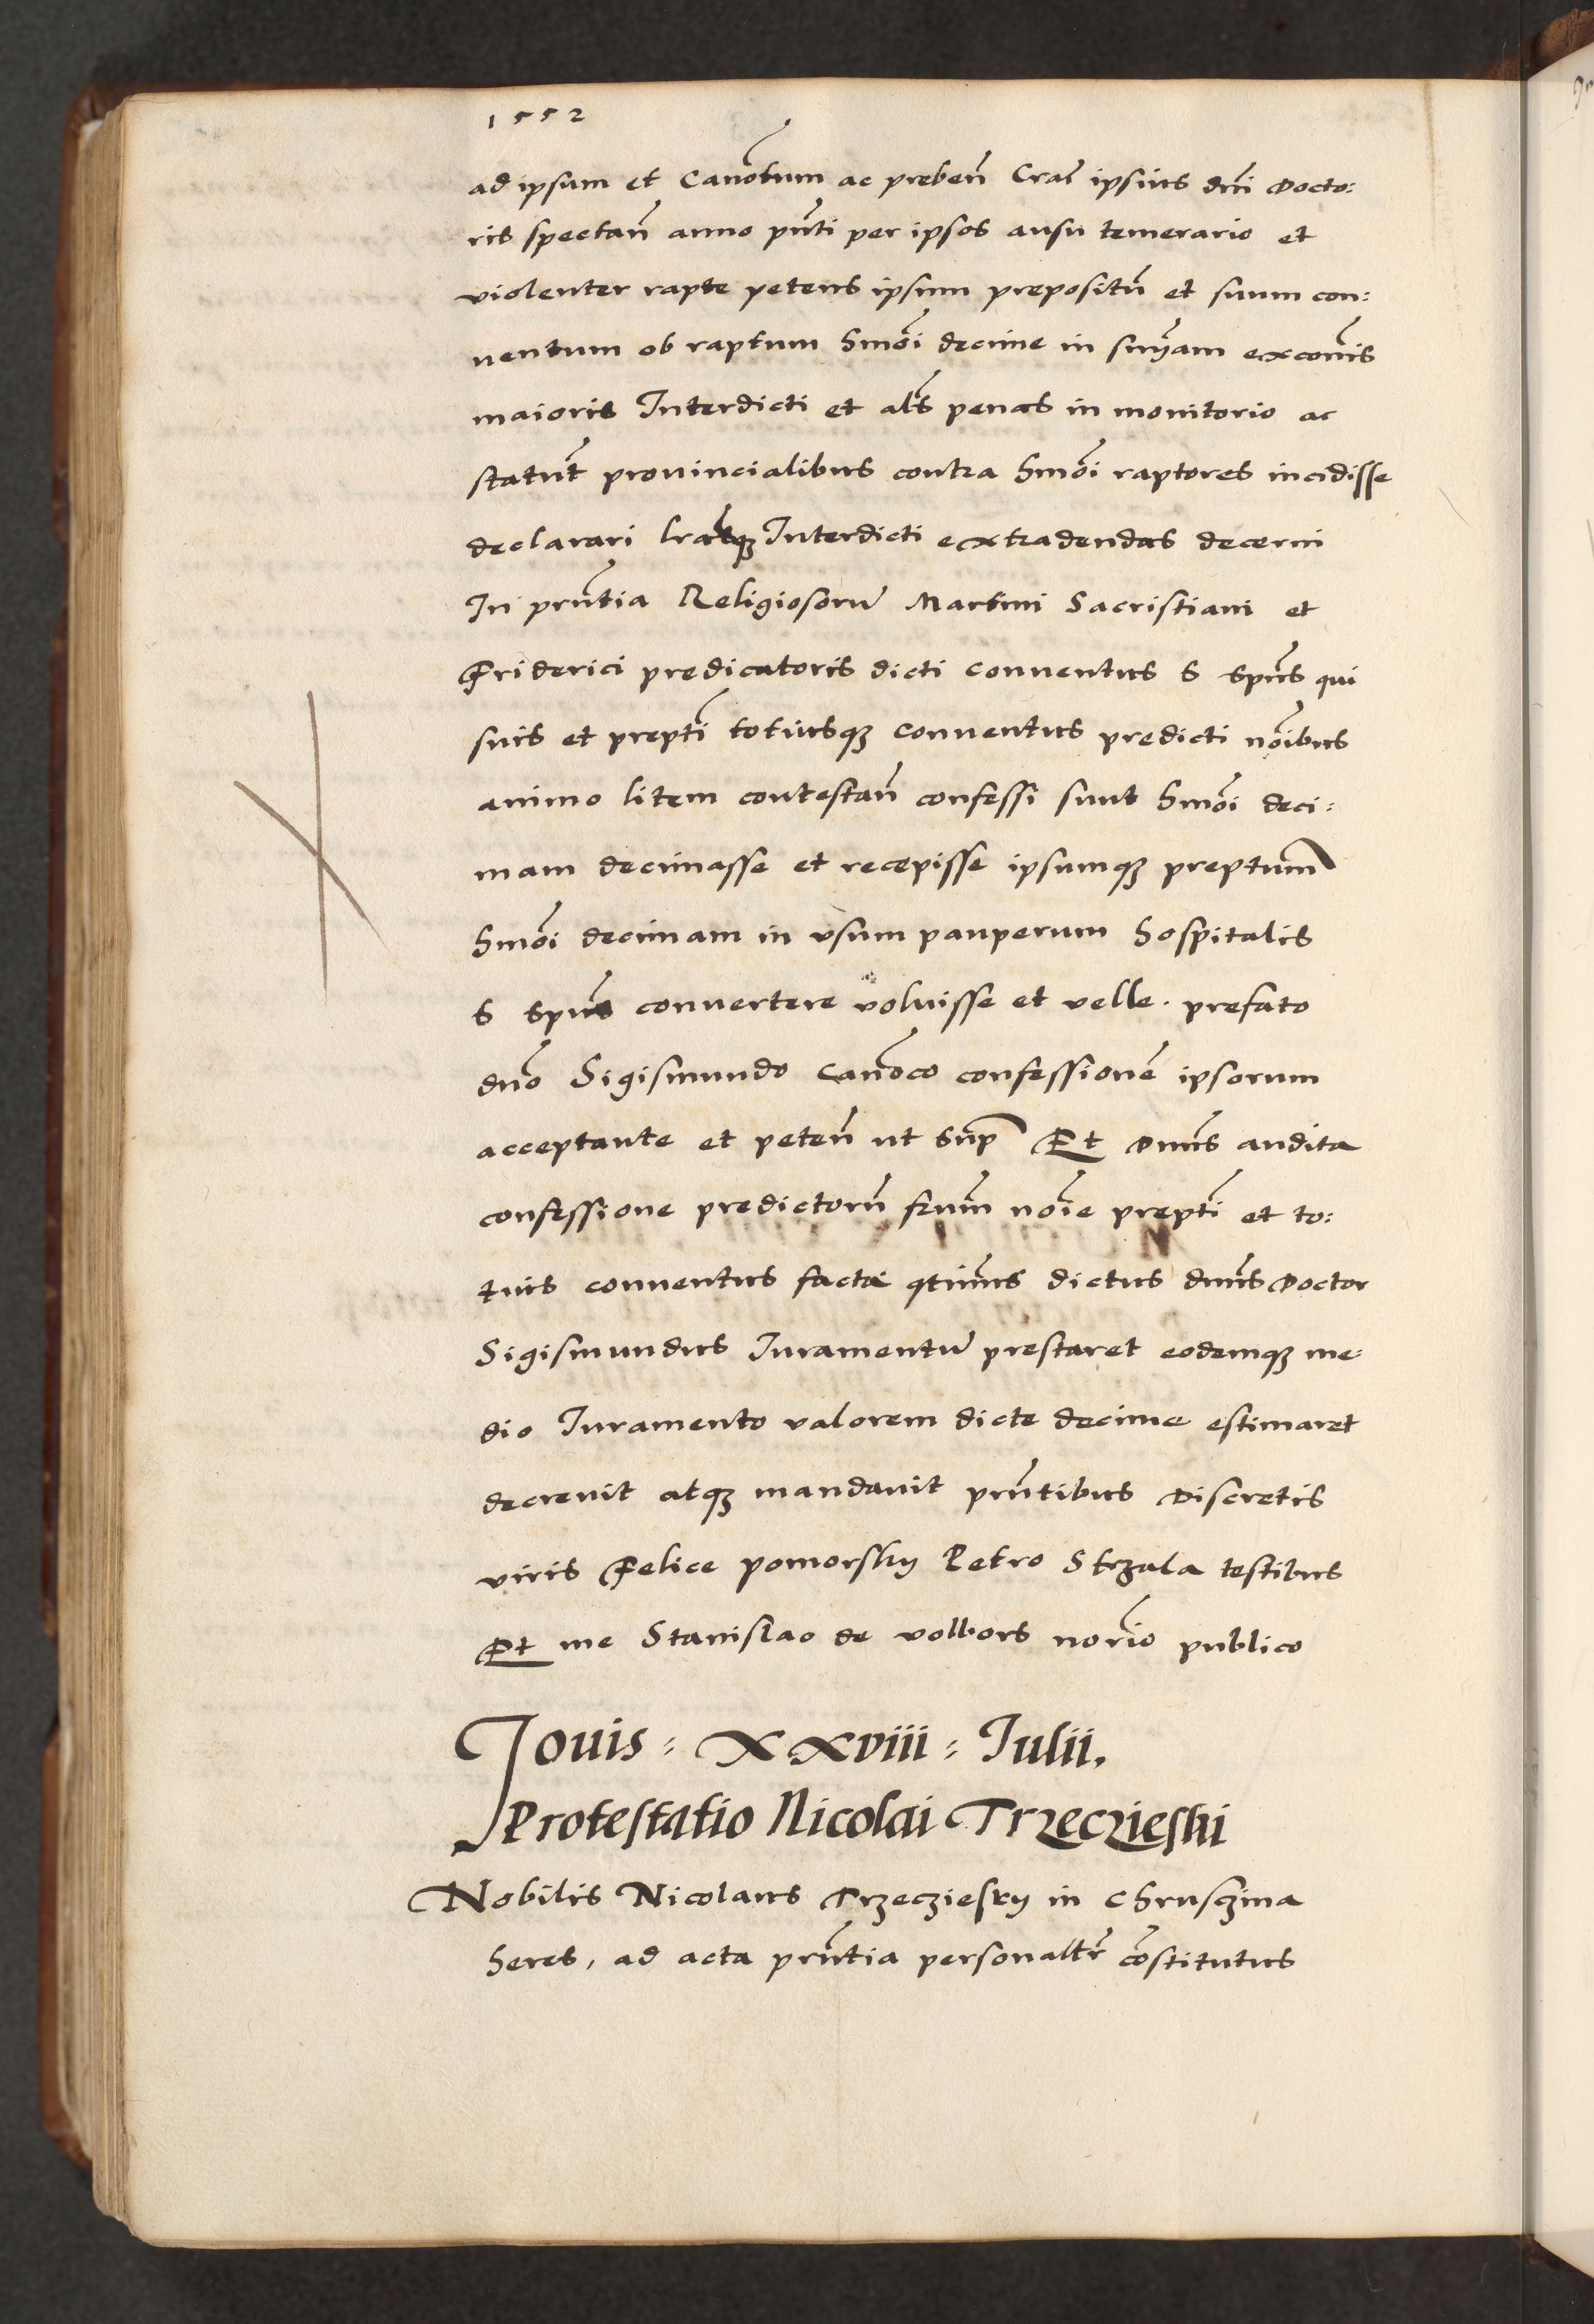 1552
ad ipsum et Canōtum ac prebeñ Craȼ ipsius dñi Docto:
ris spectañ anno pñti per ipsos ausu temerario et
violenter rapte petens ipsum prepositũ et suum con:
uentum ob raptum hmõi decime in snÿam excoñis
maioris Interdicti et als̃ penas in monitorio ac
statut̃ prouincialibus contra hmõi raptores incidisse
declarari lrasqȝ Interdicti extradendas decerni
In pñtia Religiosorũ Martini Sacristiani et
Friderici predicatoris dicti conuentus S Spũs qui
suis et prepti̇̃ totiusqȝ conuentus predicti noĩbus
animo litem contestañ confessi sunt hmõi deci:
mam decimasse et recepisse ipsumqȝ preptum̃
hmõi decimam in vsum pauperum hospitalis
S Spũs conuertere voluisse et velle. prefato
dño Sigismundo Canõco confessionẽ ipsorum
acceptante et peteñ ut sup̃ Et Dnũs audita
confessione predictorũ frum̃ noĩe prepti̇̃ et to:
tius conuentus facta qtin̄us dictus dnũs Doctor
Sigismundus Iuramentũ prestaret eodemqȝ me:
dio Iuramento valorem dicte decime estimaret
decreuit atqȝ mandauit pñtibus Discretis
viris Felice pomorsky Petro Strzala testibus
Et me Stanislao de volbors norĩo publico
Jouis = XXviii = Julii.
Protestatio Nicolai Trzeczieski
Nobilis Nicolaus Trzecziesky in Chrusczina
heres, ad acta pñtia personaltr̃ cõstitutus